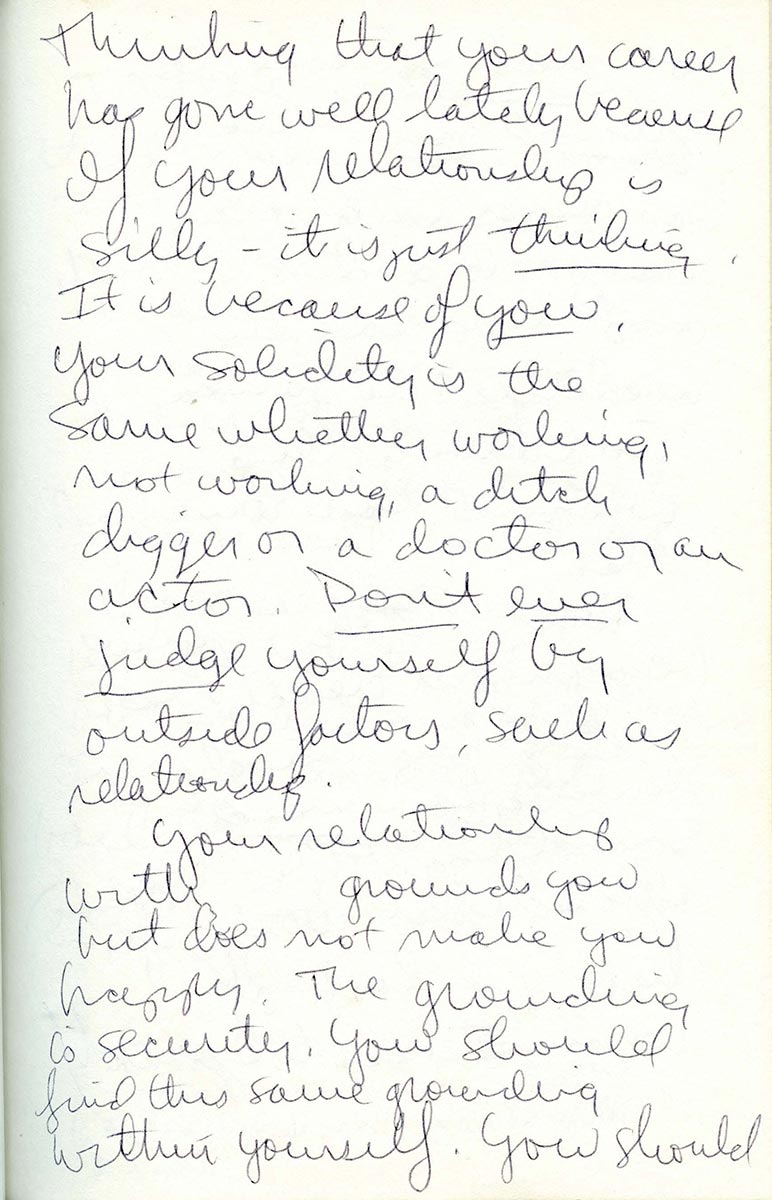 Thinking that your career
has gone well lately because
of your relationship is
silly – it is just thinking.
It is because of you.
Your solidity is the
same whether working,
not working, a ditch
digger or a doctor or an
actor. Don't ever
judge yourself by
outside factors, such as
relationship.
Your relationship
with grounds you
but does not make you
happy. The grounding
is security. You should
find this same grounding
within yourself. You should